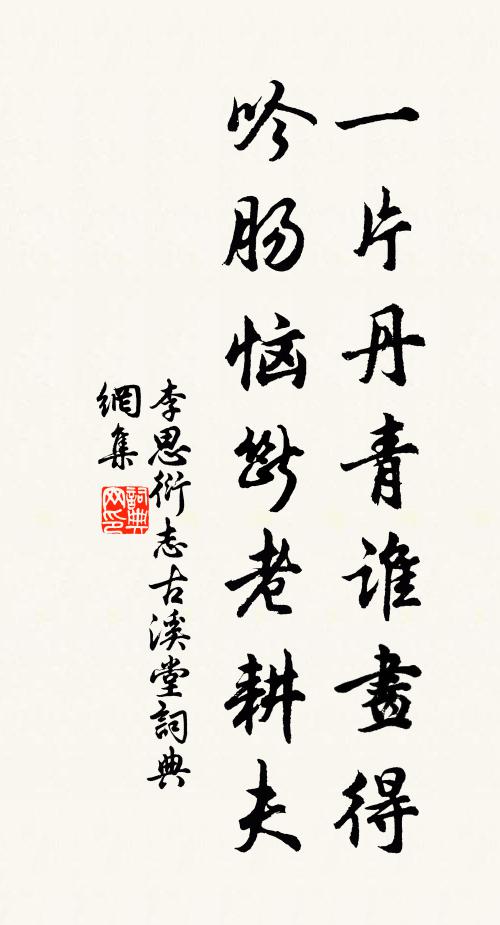 一片丹青誰畫得
吟肠惱斷老耕夫
李思衍志古溪堂詞典
網集
詞典
网印